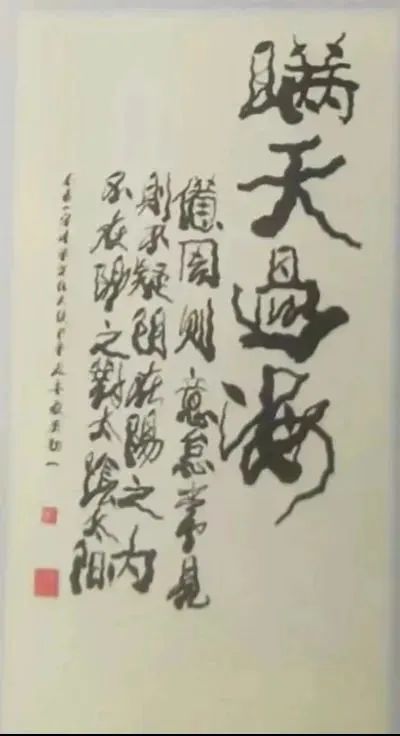 瞞天過海
備周則意怠常見
則不疑阴在陽之内
不在陽之對太陰太阳